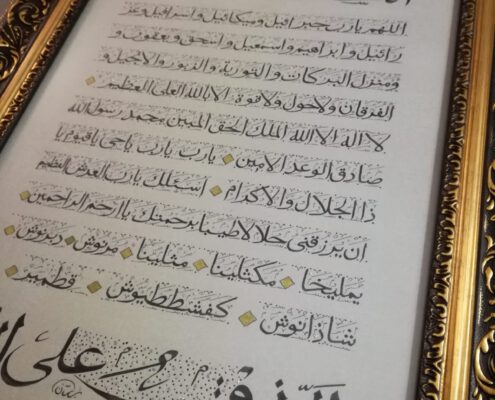 اللهم یارب جبرائیل ومیکائیل واسرافیل وعز
رائیل وابراهیم واسمعیل واسحق ویعقوب و
ومنزل البرکات والتوریة والزبور والانجیل و
الفرقان ولاحول ولاقوة الابالله العلی العظیم
لا اله الا الله الملک الحق المبین محمد رسول الله
صادق الوعد الامین یارب یارب یاحی یاقیوم یا
ذا الجلال والاکرام اسئلک یارب العرش العظیم
ان یرزقنی حلالا طیبا برحمتک یا ارحم الراحمین
یملیخا مکثلینا مثلینا مرنوش دبرنوش
شاذانوش کفشططیوش قطمیر
علی